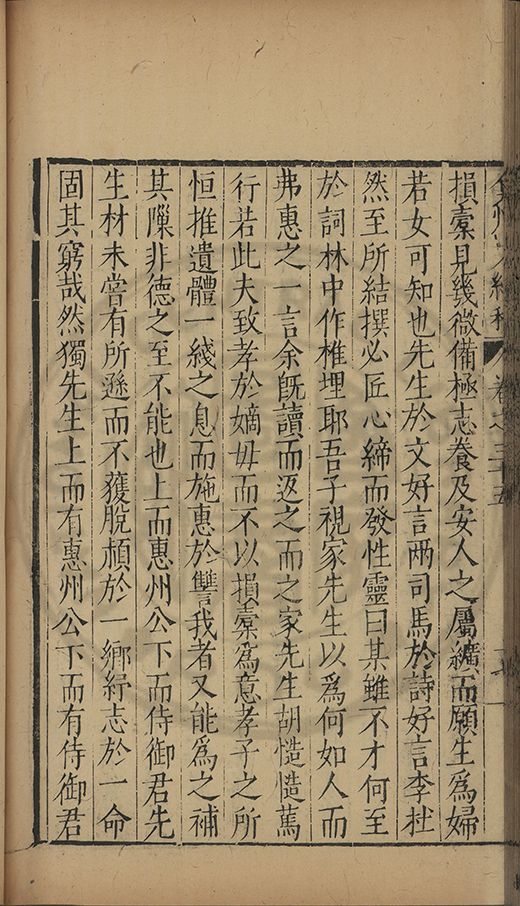 人續稿 卷之三十五
損槖見幾微備極志養及安人之屬纊而願生爲婦
若女可知也先生於文好言兩司馬於詩好言李杜
然至所結撰必匠心締而發性靈曰某雖不才何至
於詞林中作椎埋耶吾子視家先生以爲何如人而
弗惠之一言余旣讀而返之而之家先生胡慥慥篤
行若此夫致孝於嫡毋而不以損槖爲意孝子之所
恒推遺體一綫之息而施惠於讐我者又能爲之補
其隟非德之至不能也上而惠州公下而侍御君先
生材未嘗有所遜而不獲脫頴於一鄉紓志於一命
固其窮哉然獨先生上而有惠州公下而有侍御君